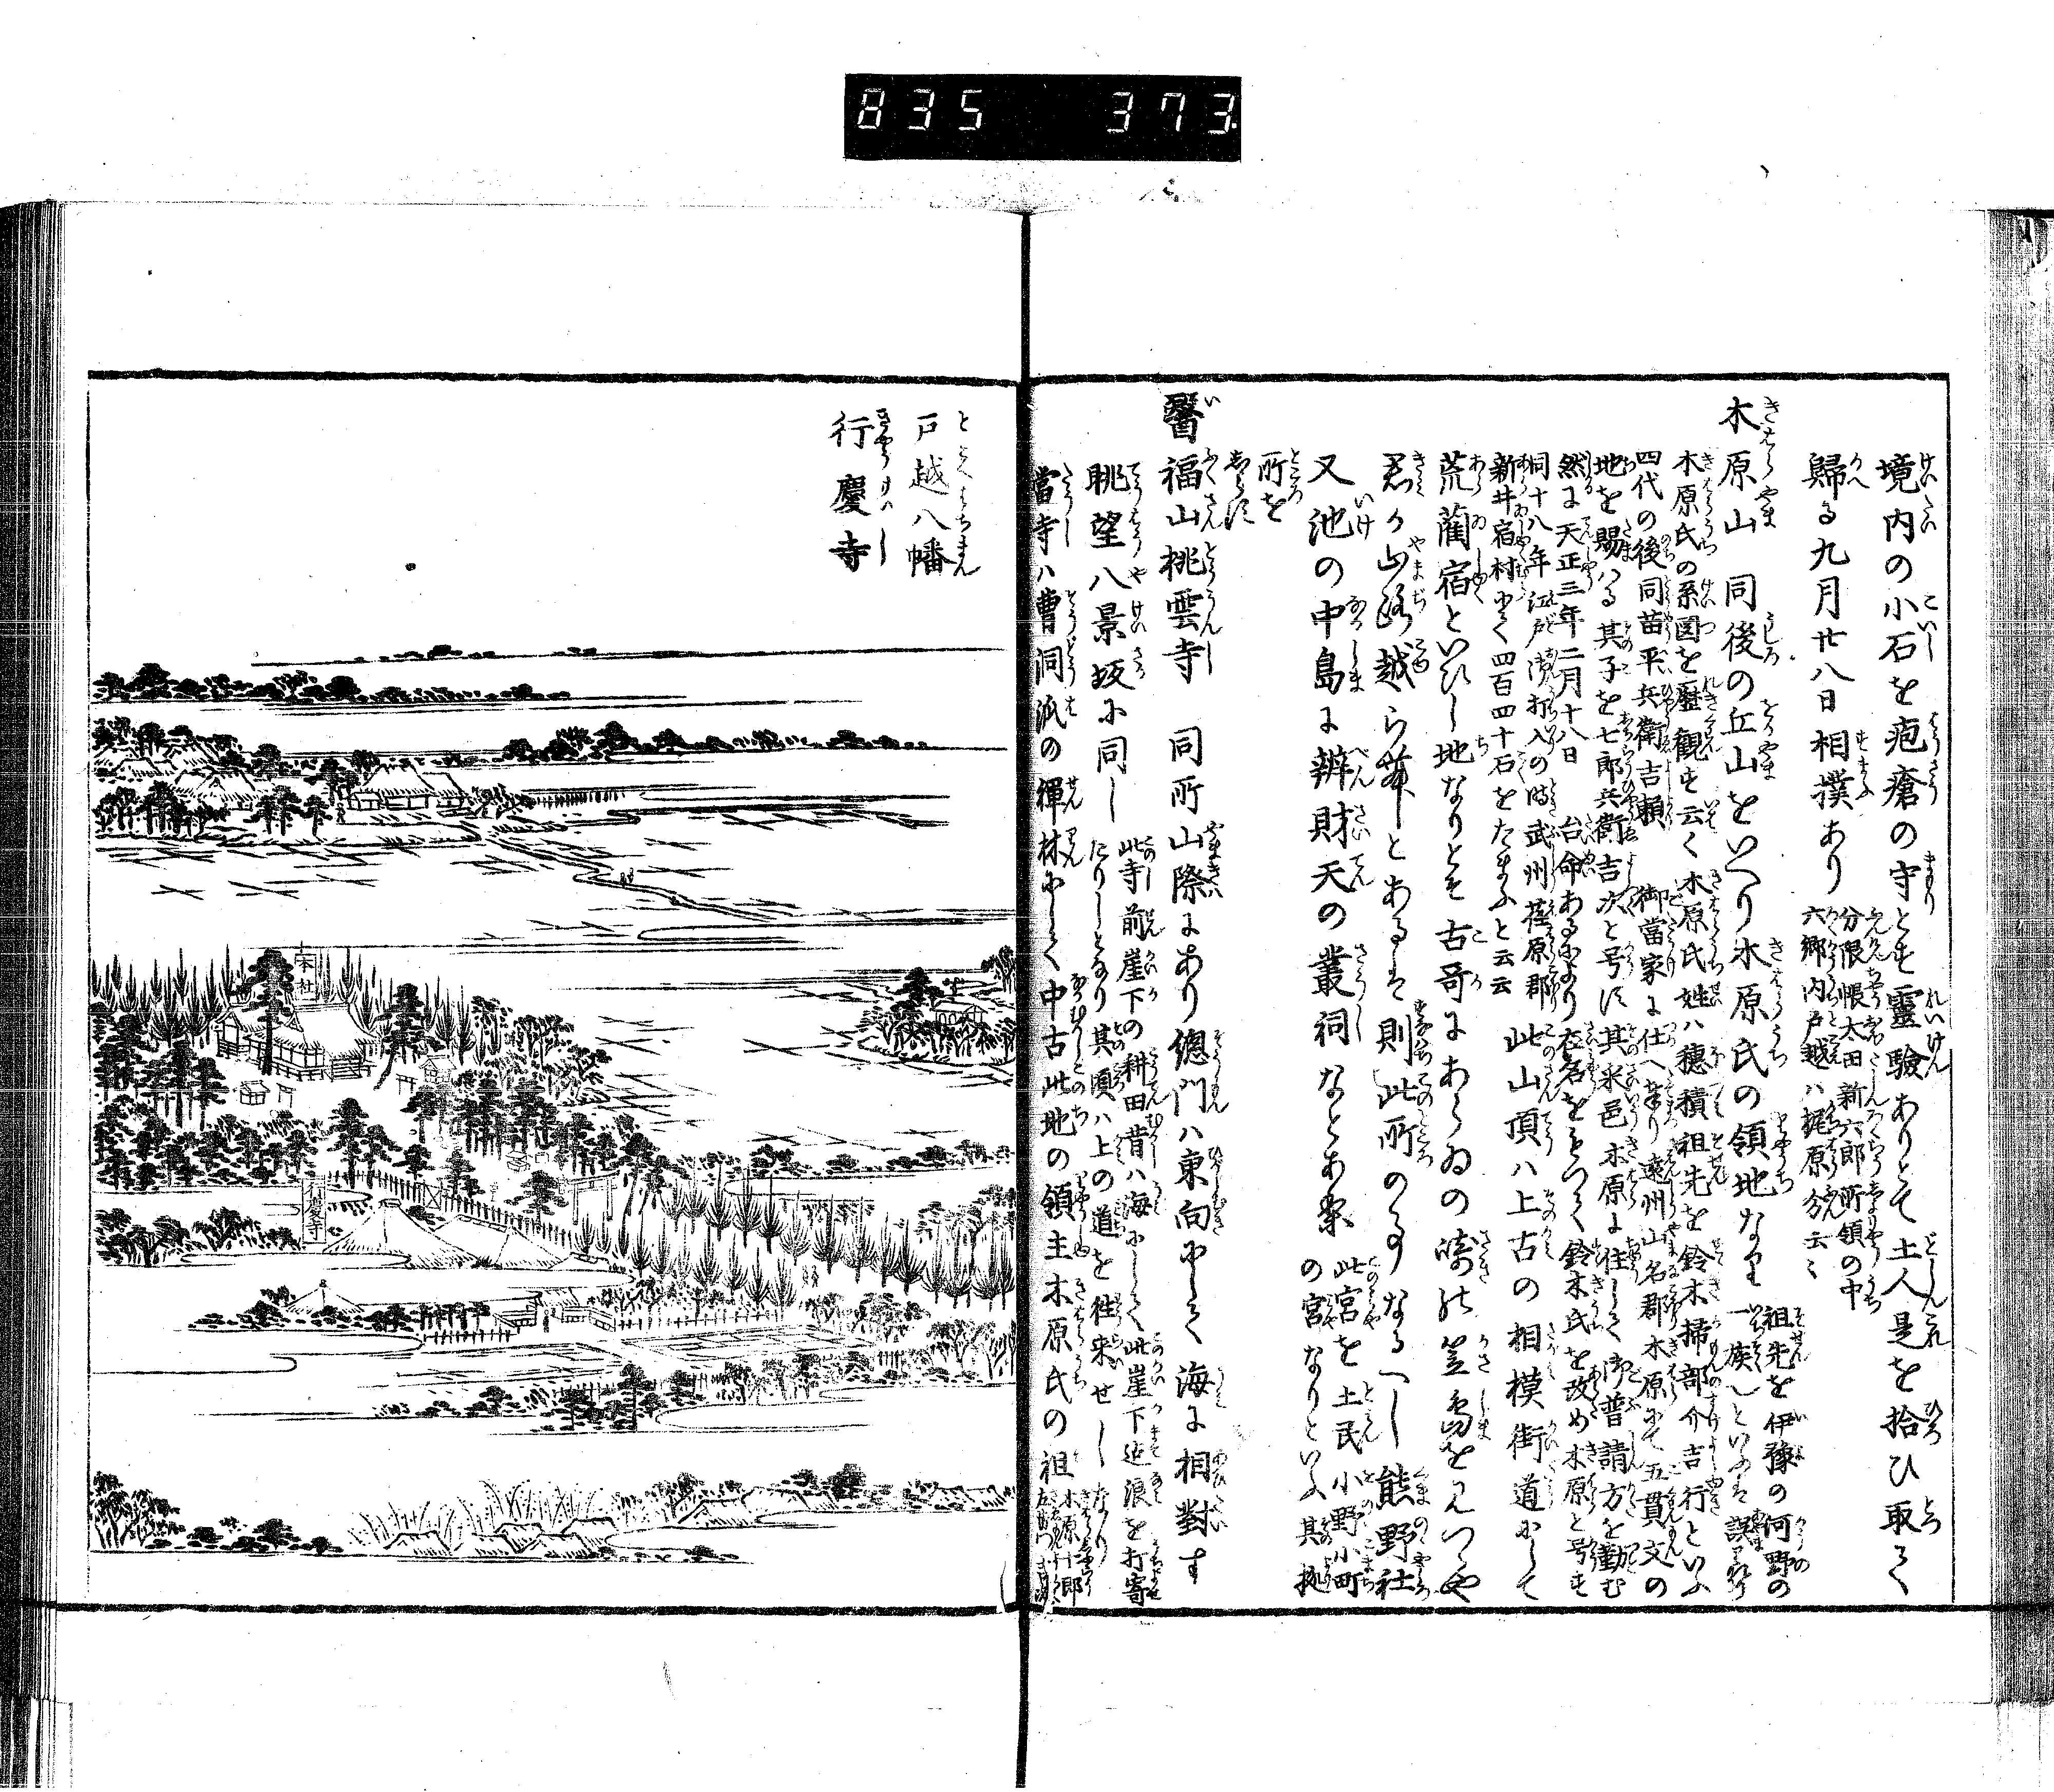 835 373
境内の小石を疱瘡の守とす霊験ありとて土人是を拾ひ取て
帰る九月廿八日相撲あり
分限帳太田新六郎所領の中
六郷内戸越ハ梶原分云々
木原山 同後の丘山をいへり木原氏の領地なり
祖先を伊豫の河野の
一族也といふは誤なり
木原氏の系図を歴観す云く木原氏姓ハ穂積祖先を鈴木掃部介吉行といふ
四代の後同苗平兵衛吉頼 御當家に仕へ奉り遠州山名郡木原にて五貫文の
地を賜はる其子を七郎兵衛吉次と号す其采邑木原に住して御普請方を勤む
然に天正三年二月十八日 台命あるにより在名をもつて鈴木氏を改め木原と号す
同十八年江戸御打入の時武州荏原郡
新井宿村にて四百四十石をたまふと云云
此山頂ハ上古の相模街道にして
荒藺宿といひし地なりとそ古哥にあらゐの崎の笠島を見つゝや
君か山路越らむとあるも則此所の事なるへし熊野社
又池の中島に辨財天の叢祠なとあり
此宮を土民小野小町
の宮なりといふ其拠
所を
しらす
醫福山桃雲寺 同所山際にあり總門ハ東向にして海に相對す
眺望八景坂に同し
此寺前崖下の耕田昔ハ海にして此崖下迄浪を打寄
たりしとなり其頃ハ上の道を往来せしなり
當寺ハ曹洞派の禅林にして中古此地の領主木原氏の祖
木原七郎
戸越八幡
とごえはちまん
行慶寺
本社
行慶寺